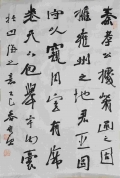 秦孝公據崤函之固
擁雍州之地君臣固
守以窺周室有席
卷天下包舉宇內囊
括四海之意